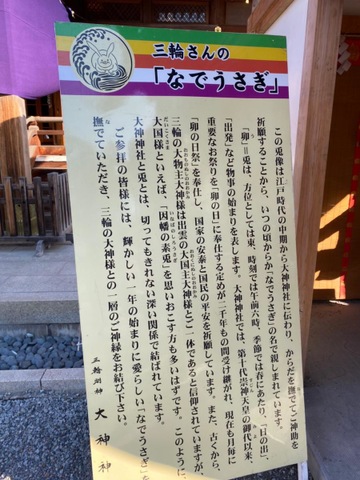 三輪さんの
「なでうさぎ」
この兎像は江戸時代の中期から大神神社に伝わり、からだを撫でてご神助を
祈願することから、いつの頃からか「なでうさぎ」の名で親しまれています。
「卯」＝兎は、方位としては東、時刻では午前六時、季節では春にあたり、「日の出」、
「出発」など物事の始まりを表します。大神神社では、第十代崇神天皇の御代以来、
重要なお祭りを「卯の日」に奉仕する定めが二千年もの間受け継がれ、現在も月毎に
「卯の日祭」を奉仕し、国家の安泰と国民の平安を祈願しています。また、古くから、
三輪の大物主大神様は出雲の大国主大神様とご一体であると信仰されていますが、
大国様といえば、「因幡の素兎」を思いおこす方も多いはずです。このように
大神神社と兎とは、切ってもきれない深い関係で結ばれています。
ご参拝の皆様には、輝かしい一年の始まりに愛らしい「なでうさぎ」を
撫でていただき、三輪の大神様との一層のご神縁をお結び下さい。
三輪明神 大神神